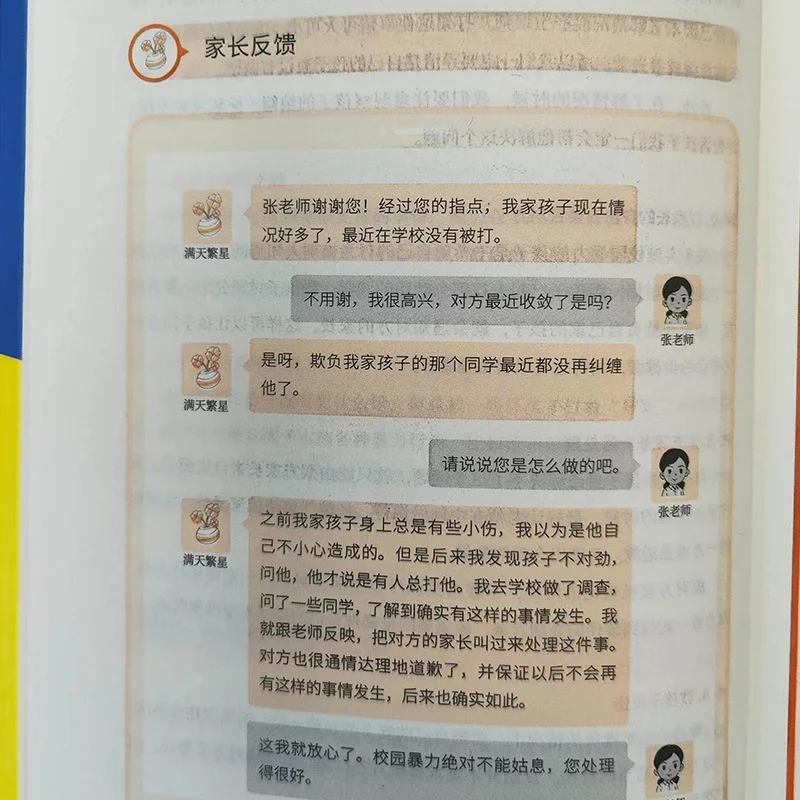 家长反馈
张老师谢谢您！经过您的指点，我家孩子现在情
况好多了，最近在学校没有被打。
满天繁星
不用谢，我很高兴，对方最近收敛了是吗？
张老师
是呀，欺负我家孩子的那个同学最近都没再纠缠
他了。
满天繁星
请说说您是怎么做的吧。
张老师
之前我家孩子身上总是有些小伤，我以为是他自
己不小心造成的。但是后来我发现孩子不对劲，
问他，他才说是有人总打他。我去学校做了调查，
问了一些同学，了解到确实有这样的事情发生。我
就跟老师反映，把对方的家长叫过来处理这件事。
对方也很通情达理地道歉了，并保证以后不会再
有这样的事情发生，后来也确实如此。
满天繁星
这我就放心了。校园暴力绝对不能姑息，您处理
得很好。